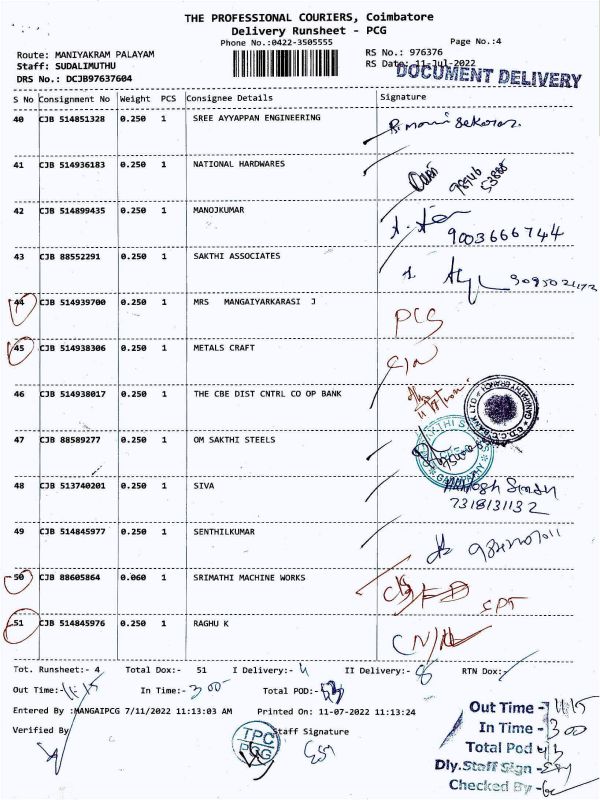 THE PROFESSIONAL COURIERS, Coimbatore
Delivery Runsheet - PCG
Phone No.:0422-3505555
Page No.:4
Route: MANIYAKRAM PALAYAM
RS No.: 976376
Staff: SUDALIMUTHU
RS Date: 11-Jul-2022
DRS No.: DCJB97637604
DOCUMENT DELIVERY
S No Consignment No Weight PCS Consignee Details Signature
40 CJB 514851328 0.250 1 SREE AYYAPPAN ENGINEERING
41 CJB 514936183 0.250 1 NATIONAL HARDWARES
98946
53885
42 CJB 514899435 0.250 1 MANOJKUMAR
9003666744
43 CJB 88552291 0.250 1 SAKTHI ASSOCIATES
44 CJB 514939700 0.250 1 MRS MANGAIYARKARASI J
PCG
45 CJB 514938306 0.250 1 METALS CRAFT
46 CJB 514938017 0.250 1 THE CBE DIST CNTRL CO OP BANK
47 CJB 88589277 0.250 1 OM SAKTHI STEELS
48 CJB 513740201 0.250 1 SIVA
Singh
7318131132
49 CJB 514845977 0.250 1 SENTHILKUMAR
50 CJB 88605864 0.060 1 SRIMATHI MACHINE WORKS
51 CJB 514845976 0.250 1 RAGHU K
Tot. Runsheet:- 4 Total Dox:- 51 I Delivery:- 4 II Delivery:- 8 RTN Dox:-
Out Time:- 11.15 In Time:- 3 00 Total POD:-
Entered By :MANGAIPCG 7/11/2022 11:13:03 AM Printed On: 11-07-2022 11:13:24
Verified By Staff Signature
TPC
PCG
Out Time - 11.15
In Time - 3 00
Total Pod
Dly.Staff Sign -
Checked By -